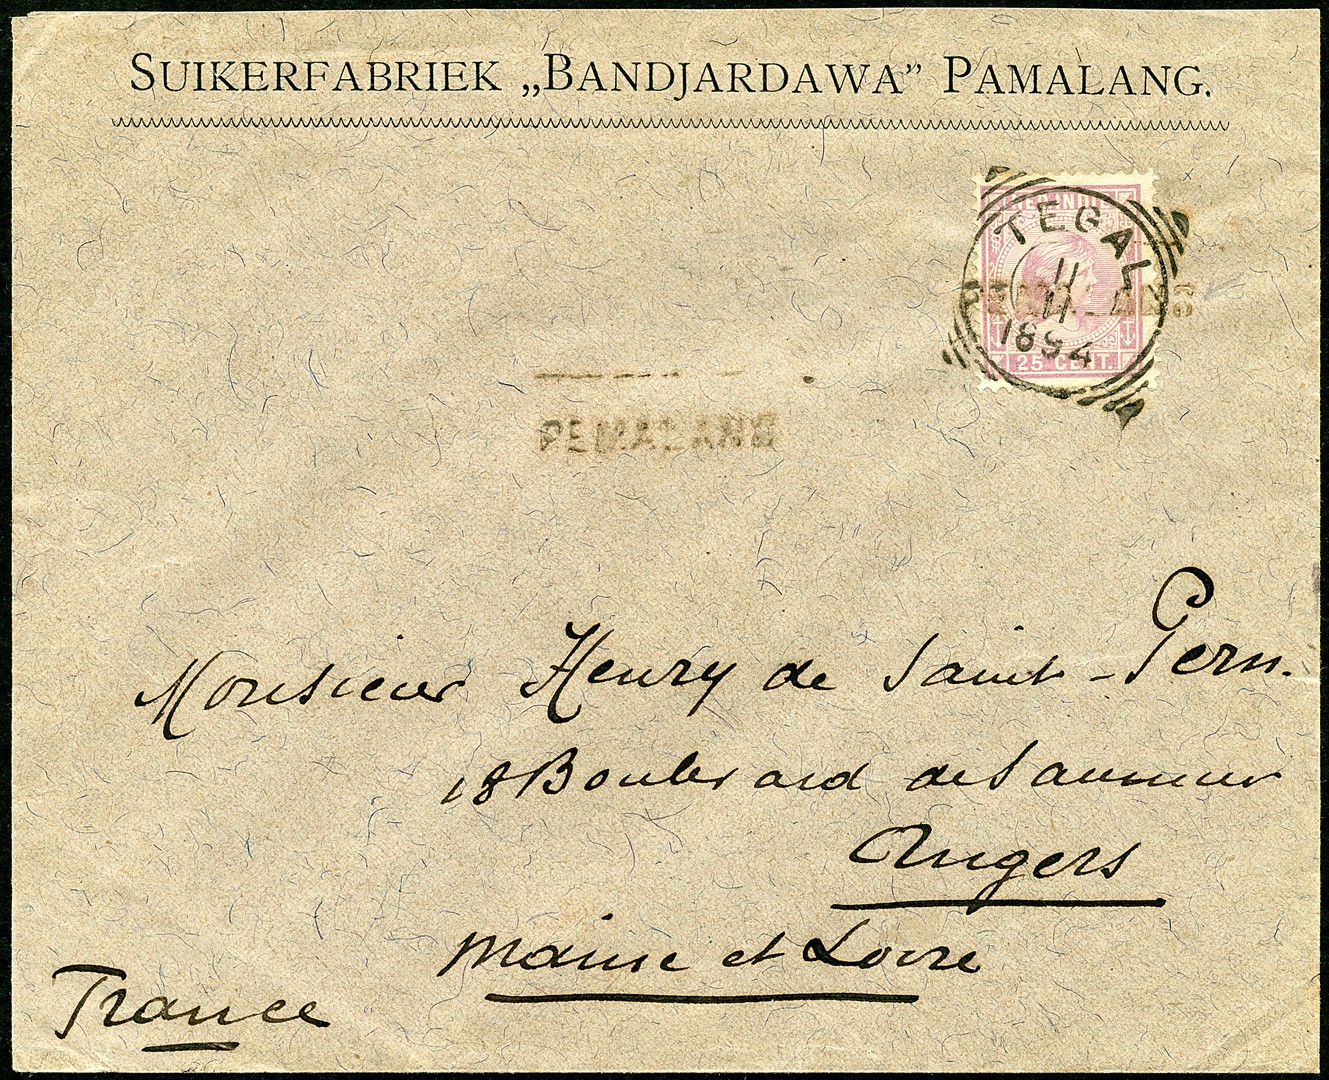 SUIKERFABRIEK „BANDJARDAWA” PAMALANG.
NED. INDIE
TEGAL
11
11
1894
25 CENT.
PEMALANG
Monsieur Henry de Saint-Pern.
18 Boulevard de Saumur
Angers
Maine et Loire
France